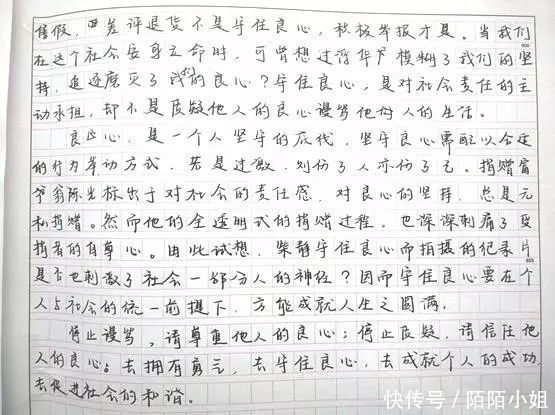 售假，四差评退货不是守住良心，积极举报才是。当我们
在这个社会安身立命时，可曾想过浮华
模糊了我们的坚
持，追逐磨灭了我们的良心？守住良心，是对社会责任的主
动承担，却不是质疑他人的良心谩骂他人的生活。
良心，是一个人坚守的底线，坚守良心需配以合适
的行为举动方式，若是过激，刘伤了人亦伤了己。捐赠富
翁陈光标出于对社会的责任感，对良心的坚持，总是无
私捐赠。然而他的全透明式的捐赠过程，也深深刺痛了受
捐者的自尊心。由此试想，柴静守住良心而拍摄的纪录片
是否也刺激了社会一部分人的神经？因而守住良心要在个
人与社会的统一前提下，方能成就人生之圆满。
停止谩骂，请尊重他人的良心；停止质疑，请信任他
人的良心。去拥有勇气，去守住良心，去成就个人的成功，
去促进社会的和谐。
600
800
快传号／陌陌小姐